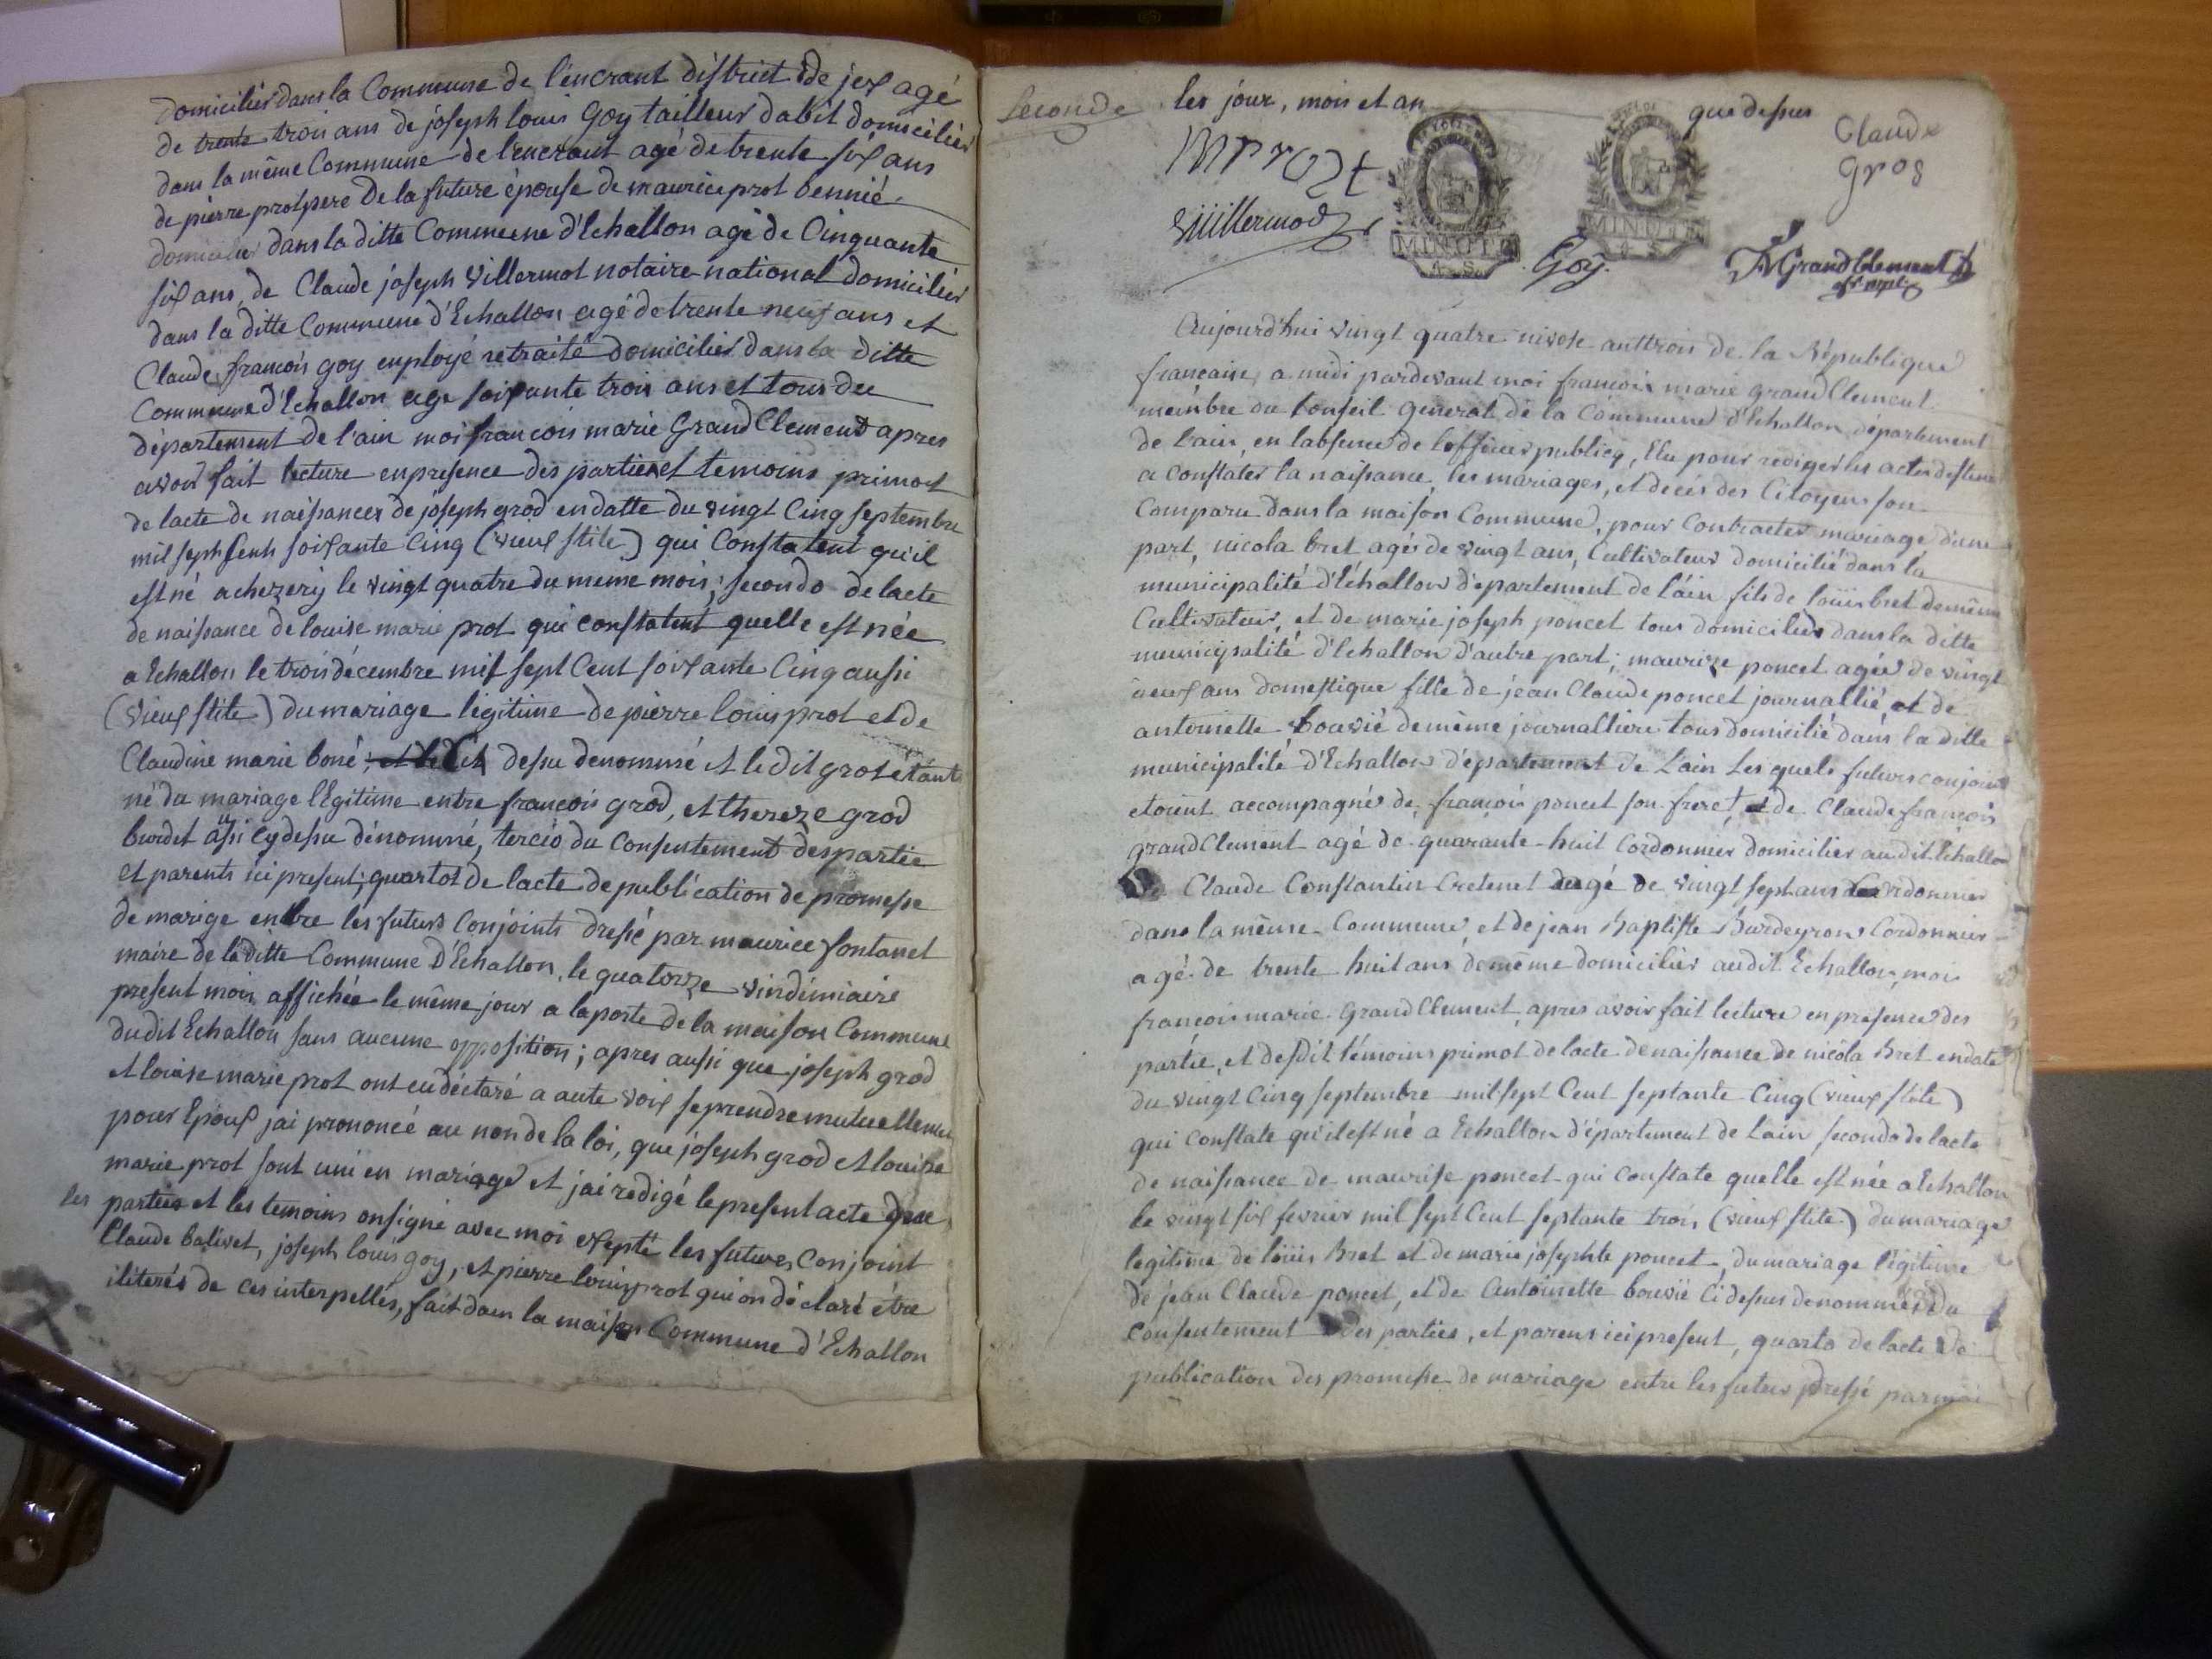 domiciliés dans la Commune de l'encrant district de jex agé
de trente trois ans de joseph louis Goy tailleur dabit domicilier
dans la même Commune de l'encrant agé de trente six ans
de pierre prot pere de la future épouse de maurice prot
domicilier dans la ditte Commune d'Echallon agé de Cinquante
six ans, de Claude joseph Villermot notaire national domicilier
dans la ditte Commune d'Echallon agé de trente neuf ans et
Claude françois goy employé retraité domicilier dans la ditte
Commune d'Echallon age soixante trois ans et tous du
département de l'ain moi françois marie Grand Clement apres
avoir fait lecture en presence des parties et temoins primot
de lacte de naissances de joseph grod en datte du vingt Cinq septembre
mil sept Cent soixante Cinq (vieux stile) qui Constatent qu'il
est né a chezery le vingt quatre du meme mois; secondo de lacte
de naissance de louise marie prot qui constatent quelle est née
a Echallon le trois décembre mil sept Cent soixante Cinq aussi
(vieux stile) du mariage légitime de pierre louis prot et de
Claudine marie boné; dessu denommé et le dit grot étant
né du mariage légitime entre françois grod, et thereze grod
burdet aussi cy dessu dénommé, tercio du Consentement des partie
et parents ici present; quartot de lacte de publication de promesse
de marige entre les futurs Conjoints dressé par maurice fontanet
maire de la ditte Commune d'Echallon, le quatorze vindémiaire
present mois affichée le même jour a la porte de la maison Commune
du dit Echallon sans aucune opposition; apres aussi que joseph grod
et louise marie prot ont eu déclaré a aute voix se prendre mutuellement
pour Epoux jai prononcé au non de la loi, que joseph grod et louise
marie prot sont uni en mariage et jai redigé le present acte que
les parties et les temoins on signé avec moi exepté les futures Conjoint
Claude balivet, joseph louis goy, et pierre louis prot qui on déclaré être
iliterés de ces interpellés, fait dans la maison Commune d'Echallon
Seconde les jour, mois et an que dessus
MProst Claude
Gros
Villermoz
MINUTE
4 S.
MINUTE
4 S.
Goÿ
Grandclement
Aujourd'hui vingt quatre nivose ant trois de la République
francaise, a midi pardevant moi francois marie grand Clement
meimbre du Conseil general de la Commune d'Echallon département
de l'ain, en labsence de lofficier publicq, Elu pour rediger les actes destine
a Constater la naissance, les mariages, et deces des Citoyens son
Comparu dans la maison Commune, pour Contracter mariage d'une
part, nicola bret agés de vingt ans, Cultivateur domicilié dans la
municipalité d'Echallon département de l'ain fils de louis bret de même
Cultivateur, et de marie joseph poncet tous domiciliés dans la ditte
municipalité d'Echallon d'autre part; maurize poncet agée de vingt
neuf ans domestique fille de jean Claude poncet journallié et de
antoinette bouvié de même journalliere tous domicilié dans la ditte
municipalité d'Echallon département de Lain Les quels futurs conjoint
etoient accompagnés de françois poncet son frere, et de Claude françois
grand Clement agé de quarante-huit Cordonnier domicilier au dit Echallon
Claude Constantin Cretenet agé de vingt sept ans Cordonnier
dans la même Commune, et de jean Baptiste Burdeyron Cordonnier
agé de trente huit ans de même domicilier audit Echallon, moi
francois marie Grand Clement, apres avoir fait lecture en presence des
partie, et desdit témoins primot de lacte de naissance de nicola Bret en date
du vingt Cinq septembre mil sept Cent septante Cinq (vieux stile)
qui constate qu'il est né a Echallon département de Lain secondo de lacte
de naissance de maurise poncet qui constate quelle est née a Echallon
le vingt six fevrier mil sept Cent septante trois (vieux stile) du mariage
legitime de louis Bret et de marie josephte poncet, du mariage légitime
de jean Claude poncet, et de Antoinette bouvié Ci dessus denommés du
consentement des parties, et parens ici present, quarto de lacte de
publication des promesse de mariage entre les futur dressé par moi